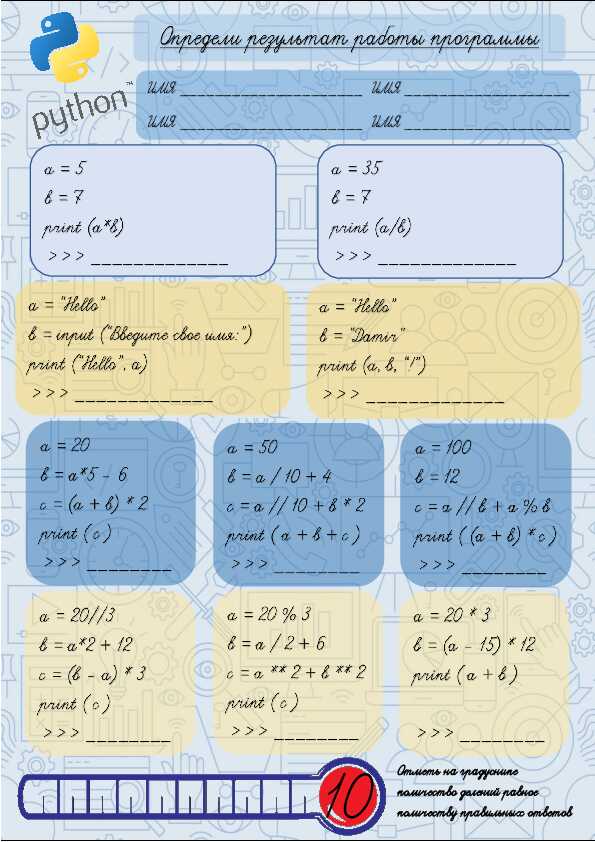 Определи результат работы программы
python™
имя __________________ имя __________________
имя __________________ имя __________________
a = 5
b = 7
print (a*b)
>>> _____________
a = 35
b = 7
print (a/b)
>>> _____________
a = "Hello"
b = input ("Введите свое имя:")
print ("Hello", a)
>>> _____________
a = "Hello"
b = "Damir"
print (a, b, "!")
>>> _____________
a = 20
b = a*5 - 6
c = (a + b) * 2
print (c)
>>> ________
a = 50
b = a / 10 + 4
c = a // 10 + b * 2
print (a + b + c)
>>> ________
a = 100
b = 12
c = a // b + a % b
print ((a + b) * c)
>>> ________
a = 20//3
b = a*2 + 12
c = (b - a) * 3
print (c)
>>> ________
a = 20 % 3
b = a / 2 + 6
c = a ** 2 + b ** 2
print (c)
>>> ________
a = 20 * 3
b = (a - 15) * 12
print (a + b)
>>> ________
10
Отметь на градуснике
количество делений равное
количеству правильных ответов